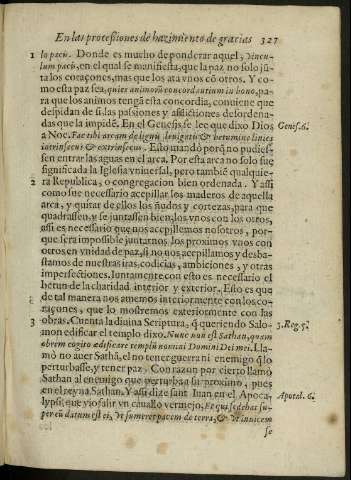 En las processiones de hazimiento de gracias 327
1 lo pacis. Donde es mucho de ponderar aquel, Vincu-
lum pacis, en el qual se manifiesta, que la paz no solo jũ-
ta los coraçones, mas que los ata vnos cõ otros. Y co-
mo esta paz sea, quies animorũ concordantium in bono, pa-
ra que los animos tengã esta concordia, conuiene que
despidan de si las passiones y aficiones desordena-
das que la impidẽ. En el Genesis se lee que dixo Dios
a Noe. Fac tibi arcam de lignis leuigatis & bitumine linies
Genes. 6.
intrinsecus & extrinsecus. Esto mandò porq̃ no pudies-
sen entrar las aguas en el arca. Por esta arca no solo fue
significada la Iglesia vniuersal, pero tambiẽ qualquie-
2 ra Republica, o congregacion bien ordenada. Y assi
como fue necessario acepillar los maderos de aquella
arca, y quitar de ellos los ñudos y cortezas, para que
quadrassen, y se juntassen bien, los vnos con los otros,
assi es necessario que nos acepillemos nosotros, por-
que serà impossible juntarnos los proximos vnos con
otros en vnidad de paz, si no nos acepillamos y desba-
stamos de nuestras iras, codicias, ambiciones, y otras
imperfectiones. Iuntamente con esto es necessario el
betun de la charidad interior y exterior. Esto es que
de tal manera nos amemos interiormente con los co-
raçones, que lo mostremos exteriormente con las
3 obras. Cuenta la diuina Scriptura, q̃ queriendo Salo-
3. Reg. 5.
mon edificar el templo dixo. Nunc non est Sathan, quam
obrem cogito ædificare templũ nomini Domini Dei mei. Lla-
mò no auer Sathã, el no tener guerra ni enemigo q̃ lo
perturbasse, y tener paz. Con razon por cierto llamò
Sathan al enemigo que perturba su proximo, pues
en el reyna Sathan. Y assi dize sant Iuan en el Apoca-
Apocal. 6.
lypsi, que vio salir vn cauallo vermejo, Et qui sedebat su-
per eũ datum est ei, vt sumeret pacem de terra, & vt inuicem
se